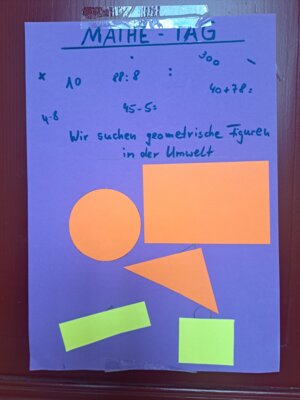 MATHE - TAG
x 10 88:8 : 300 -
40+78=
4·8 45-5=
Wir suchen geometrische Figuren
in der Umwelt